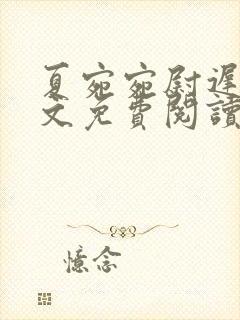 夏宛宛尉遲
文免費閱讀
憶念